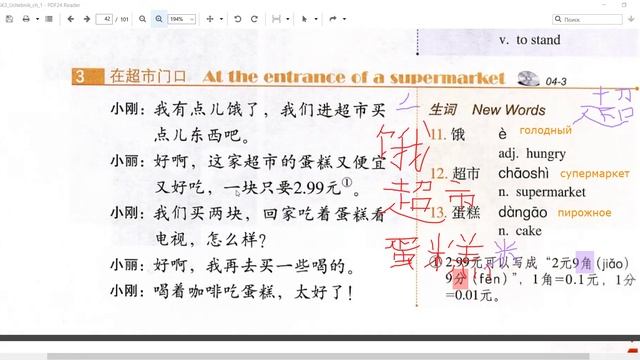 ch_1 - PDF24 Reader
42 / 101
194%
Поиск
v. to stand
3 在超市门口 At the entrance of a supermarket 04-3
小刚：我有点儿饿了，我们进超市买
点儿东西吧。
小丽：好啊，这家超市的蛋糕又便宜
又好吃，一块只要2.99元①。
小刚：我们买两块，回家吃着蛋糕看
电视，怎么样？
小丽：好啊，我再去买一些喝的。
小刚：喝着咖啡吃蛋糕，太好了！
生词 New Words
11. 饿 è голодный
adj. hungry
12. 超市 chāoshì супермаркет
n. supermarket
13. 蛋糕 dàngāo пирожное
n. cake
① 2.99元可以写成“2元9角（jiǎo）
9分（fēn）”，1角=0.1元，1分
=0.01元。
饿
超市
蛋糕
米